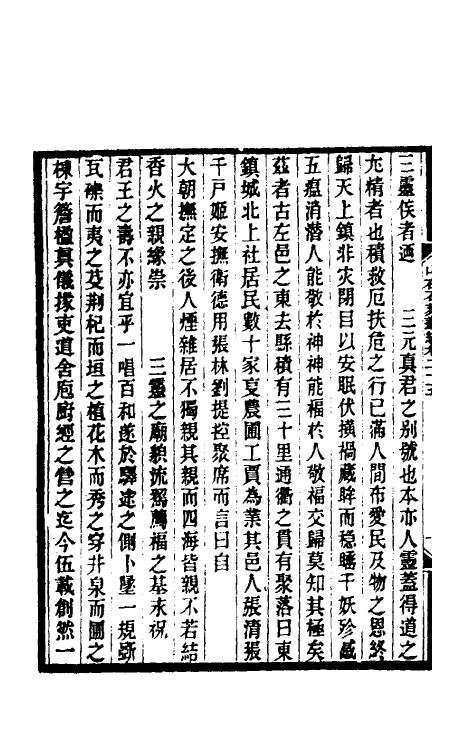 三靈侯者廼　三元真君之别號也本亦人靈蓋得道之
尤精者也積救厄扶危之行已滿人間布愛民及物之恩終
歸天上鎮非灾閉目以安眠伏橫禍藏眸而穏𥋙千妖殄慼
五瘟消潜人能敬扵神神能福扵人敬福交歸莫知其極矣
茲者古左邑之東去縣積有三十里通衢之貫有聚落曰東
鎮城北上社居民數十家㝡農圃工賈為業其邑人張清張
千戸姬安撫衛德用張林劉提控聚席而言曰自
大朝撫定之後人煙雜居不獨親其親而四海皆親不若結
香火之親緣崇　三靈之廟貌流為薦福之基未祝
君王之壽不亦宜乎一唱百和遂於驛途之側卜墜一規斲
瓦礫而夷之芟荆杞而垣之植花木而秀之穿井泉而圃之
棟宇簷楹真儀掾吏道舍庖廚經之營之迄今伍載創然一